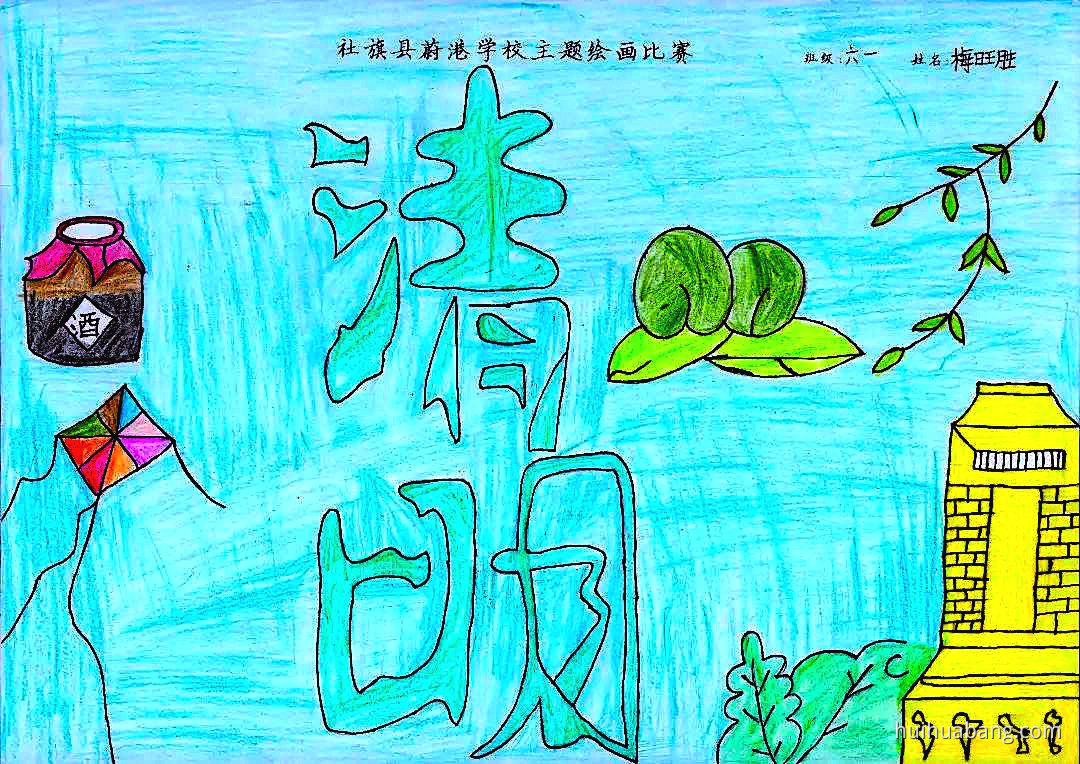 社旗县蔚港学校主题绘画比赛
班级:六一 姓名:梅旺胜
清明
酒
huihuabang.com